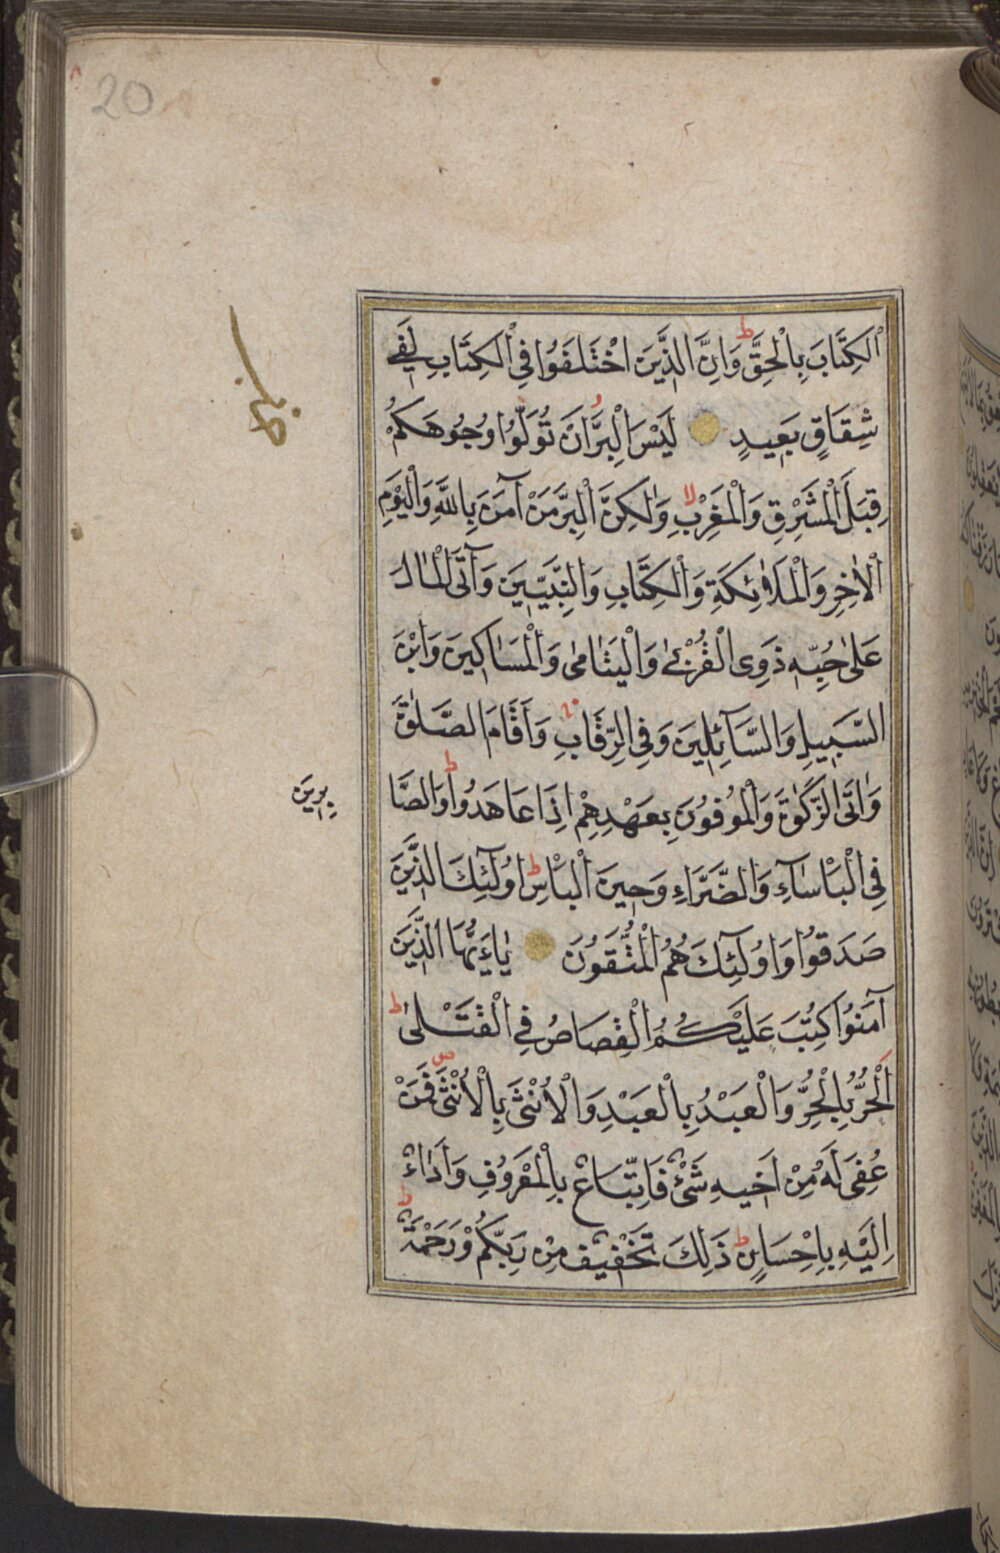 20
الْكِتَابَ بِالْحَقِّ وَاِنَّ الَّذِينَ اخْتَلَفُوا فِي الْكِتَابِ لَفِي
شِقَاقٍ بَعِيدٍ لَيْسَ الْبِرُّ اَنْ تُوَلُّوا وُجُوهَكُمْ
قِبَلَ الْمَشْرِقِ وَالْمَغْرِبِ وَلٰكِنَّ الْبِرَّ مَنْ آمَنَ بِاللّٰهِ وَالْيَوْمِ
الْاٰخِرِ وَالْمَلٰٓئِكَةِ وَالْكِتَابِ وَالنَّبِيّينَ وَآتَى الْمَالَ
عَلٰى حُبِّهِ ذَوِى الْقُرْبٰى وَالْيَتَامٰى وَالْمَسَاكِينَ وَابْنَ
السَّبِيلِ وَالسَّآئِلِينَ وَفِى الرِّقَابِ وَاَقَامَ الصَّلٰوةَ
وَاٰتَى الزَّكٰوةَ وَالْمُوفُونَ بِعَهْدِهِمْ اِذَا عَاهَدُوا وَالصَّا
بِرِينَ
فِى الْبَاْسَآءِ وَالضَّرَّاءِ وَحِينَ الْبَاْسِ اُولٰٓئِكَ الَّذِينَ
صَدَقُوا وَاُولٰٓئِكَ هُمُ الْمُتَّقُونَ يَٓا اَيُّهَا الَّذِينَ
آمَنُوا كُتِبَ عَلَيْكُمُ الْقِصَاصُ فِي الْقَتْلٰى
اَلْحُرُّ بِالْحُرِّ وَالْعَبْدُ بِالْعَبْدِ وَالْاُنْثٰى بِالْاُنْثٰى فَمَنْ
عُفِىَ لَهُ مِنْ اَخِيهِ شَىْءٌ فَاتِّبَاعٌ بِالْمَعْرُوفِ وَاَدَاءٌ
اِلَيْهِ بِاِحْسَانٍ ذٰلِكَ تَخْفِيفٌ مِنْ رَبِّكُمْ وَرَحْمَةٌ